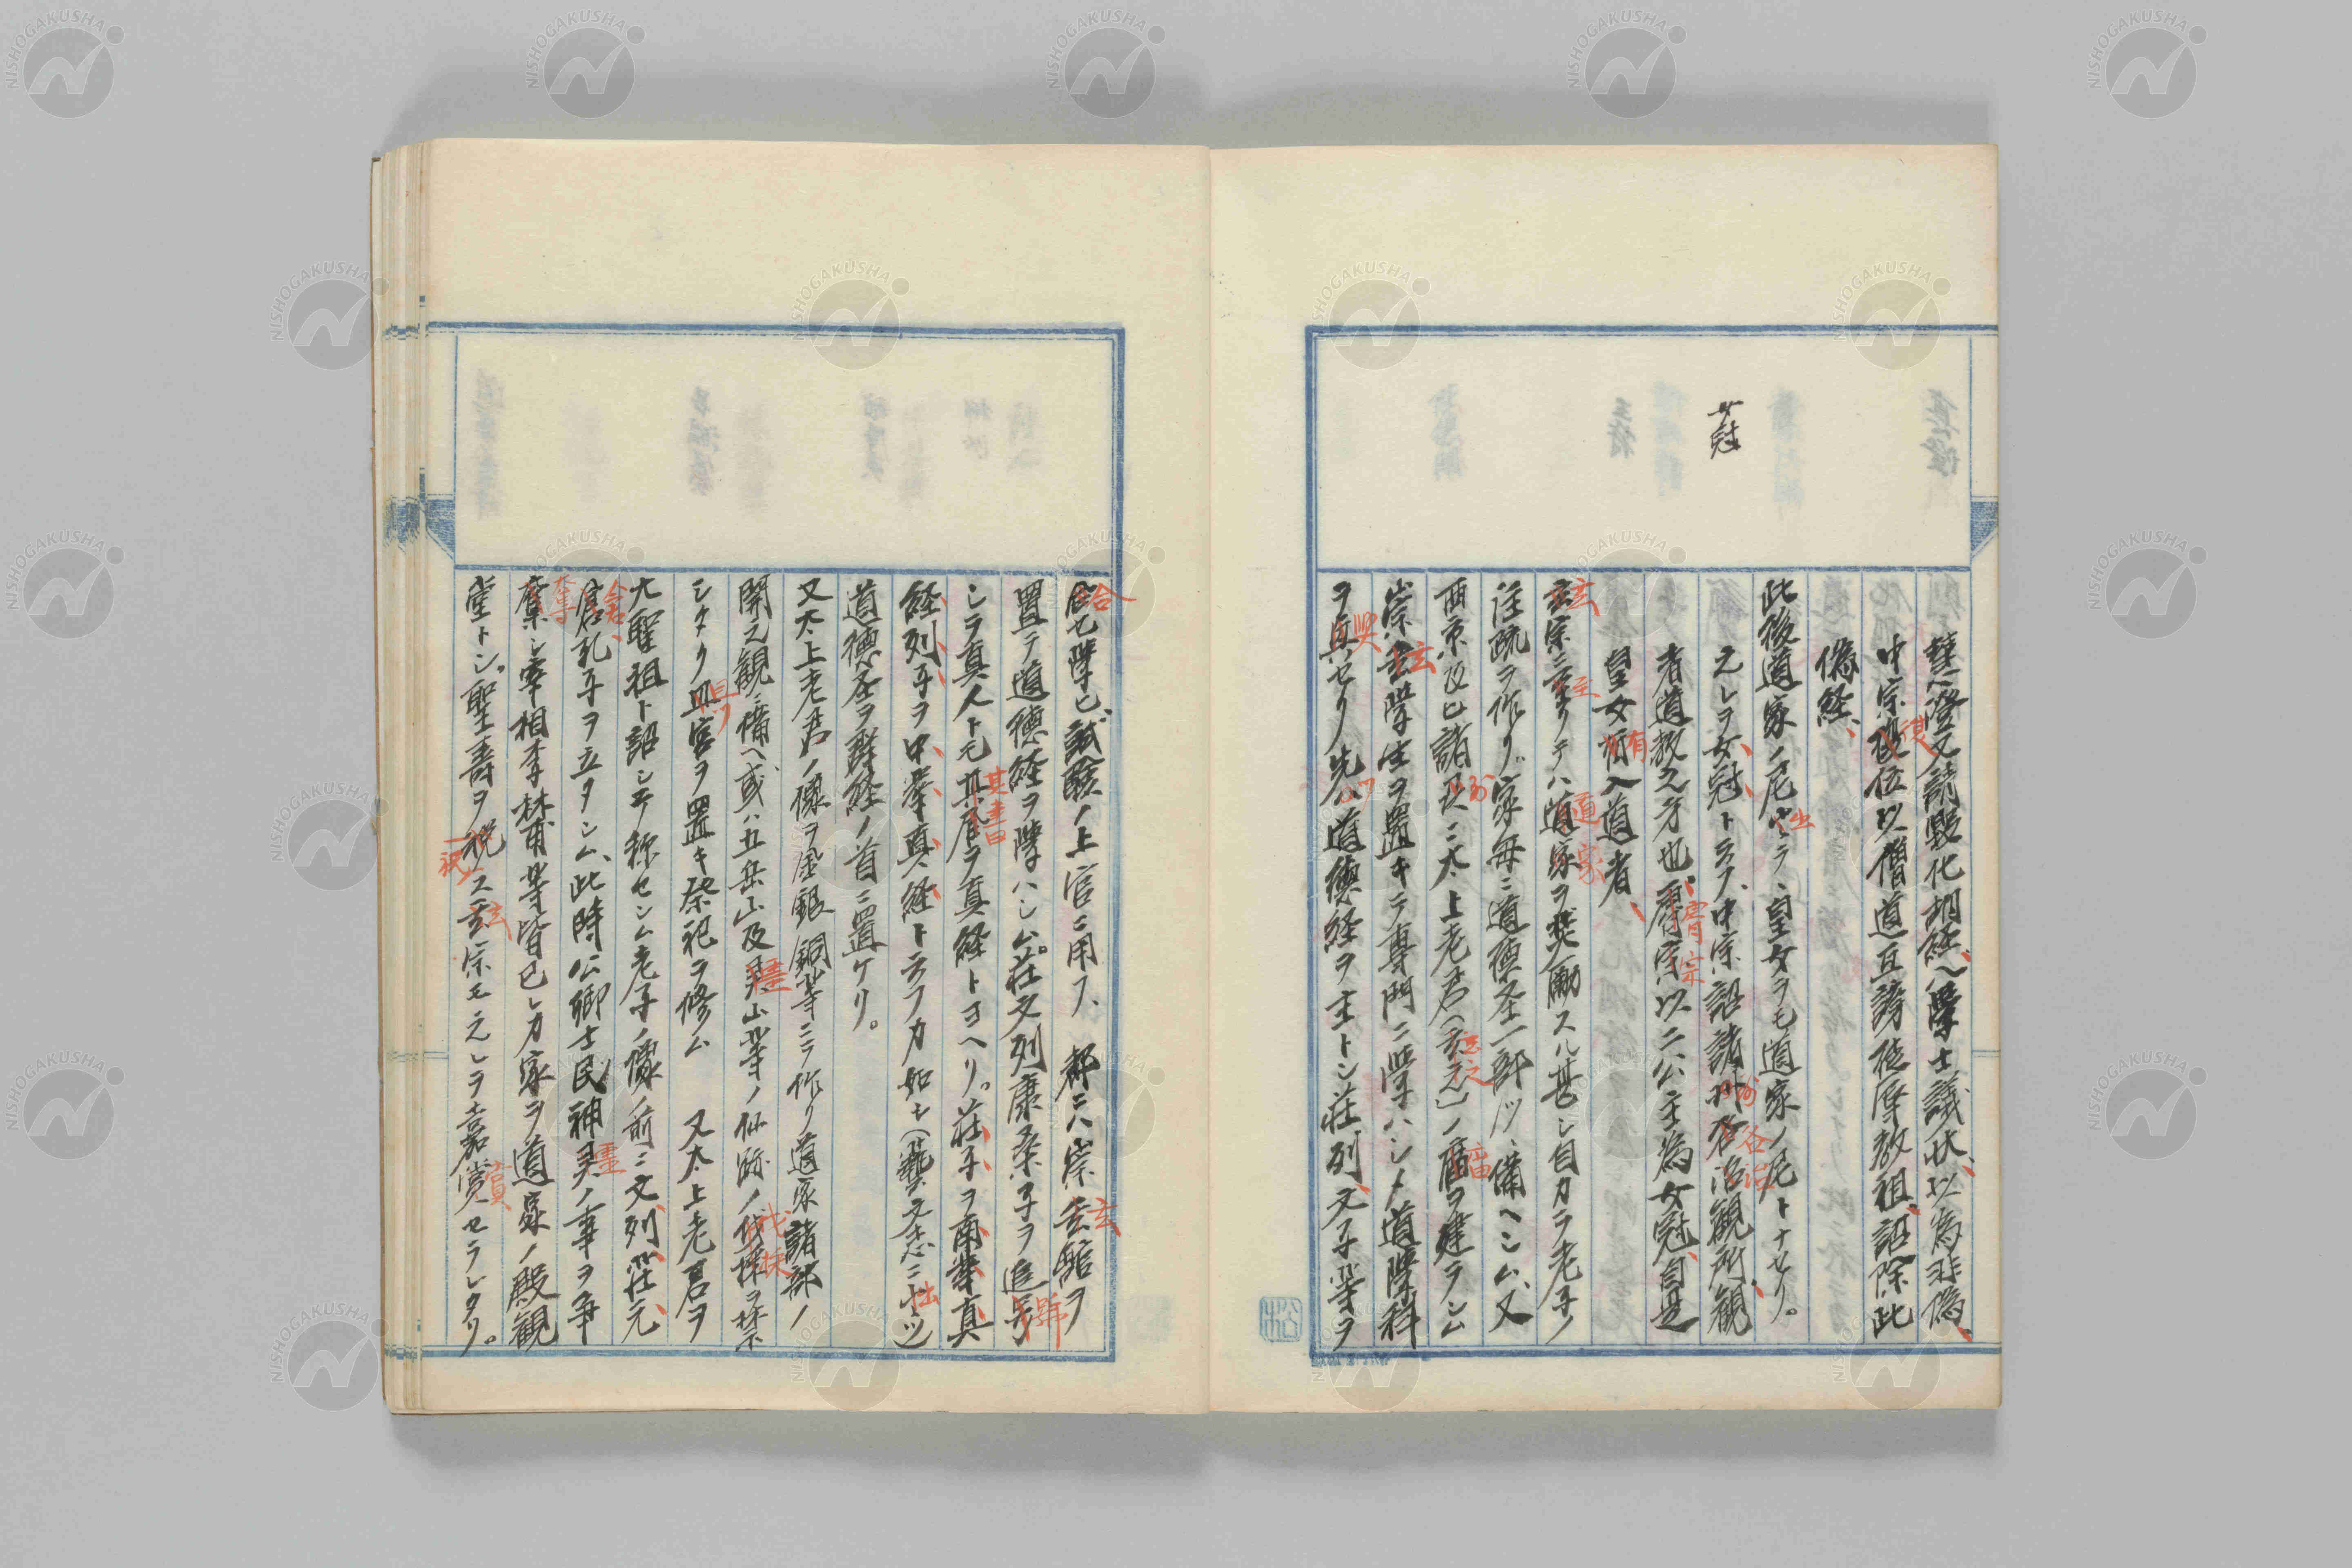 女冠
慧澄又請毀化胡経、学士議状、以為非偽、
中宗復位以僧道互謗徒厚教祖、詔除此
偽経、
此後道家ノ尼出テ、皇女ヲモ道家ノ尼トナセリ。
之レヲ女冠ト云フ、中宗詔諸州各治観所観
者道教之寺也、睿宗以二公主為女冠、自是
皇女有入道者、
玄宗ニ至リテハ道家ヲ奨励スル甚シ自カラ老子ノ
注疏ヲ作リ、家毎ニ道徳圣一部ツヽ備ヘシム、又
西京及ヒ諸州ニ太上老君(玄元)ノ廟ヲ建ラシム
崇玄学生ヲ置キテ専門ニ学ハシメ道学科
ヲ興セリ先ツ道徳経ヲ主トシ荘列、文子等ヲ
合セ学ヒ試験ノ上官ニ用フ、都ニハ崇玄館ヲ
置テ道徳経ヲ学ハシム。荘文列康桑子ヲ追号
シテ真人ト云其書曰ヲ真経トヨヘリ。荘子ヲ南華真
経、列子ヲ中虚真経ト云フカ如キ(藝文志ニ出ツ)
道徳圣ヲ群経ノ首ニ置ケリ。
又太上老君ノ像ヲ金銀銅等ニテ作リ道家諸部ノ
開元観ニ備ヘ、或ハ五岳山及霊山等ノ仙跡ノ伐採ヲ禁
シタリ且ツ官ヲ置キ祭祀ヲ修ム 又太上老君ヲ
大聖祖ト詔シテ称セシム老子ノ像ノ前ニ文、列、荘、元、
倉、孔子ヲ立タシム、此時公卿士民神霊ノ事ヲ争
奏シ宰相李林甫等皆己レカ家ヲ道家ノ殿観
堂トシ。聖寿ヲ祝ス玄宗モ之レヲ嘉賞セラレタリ。